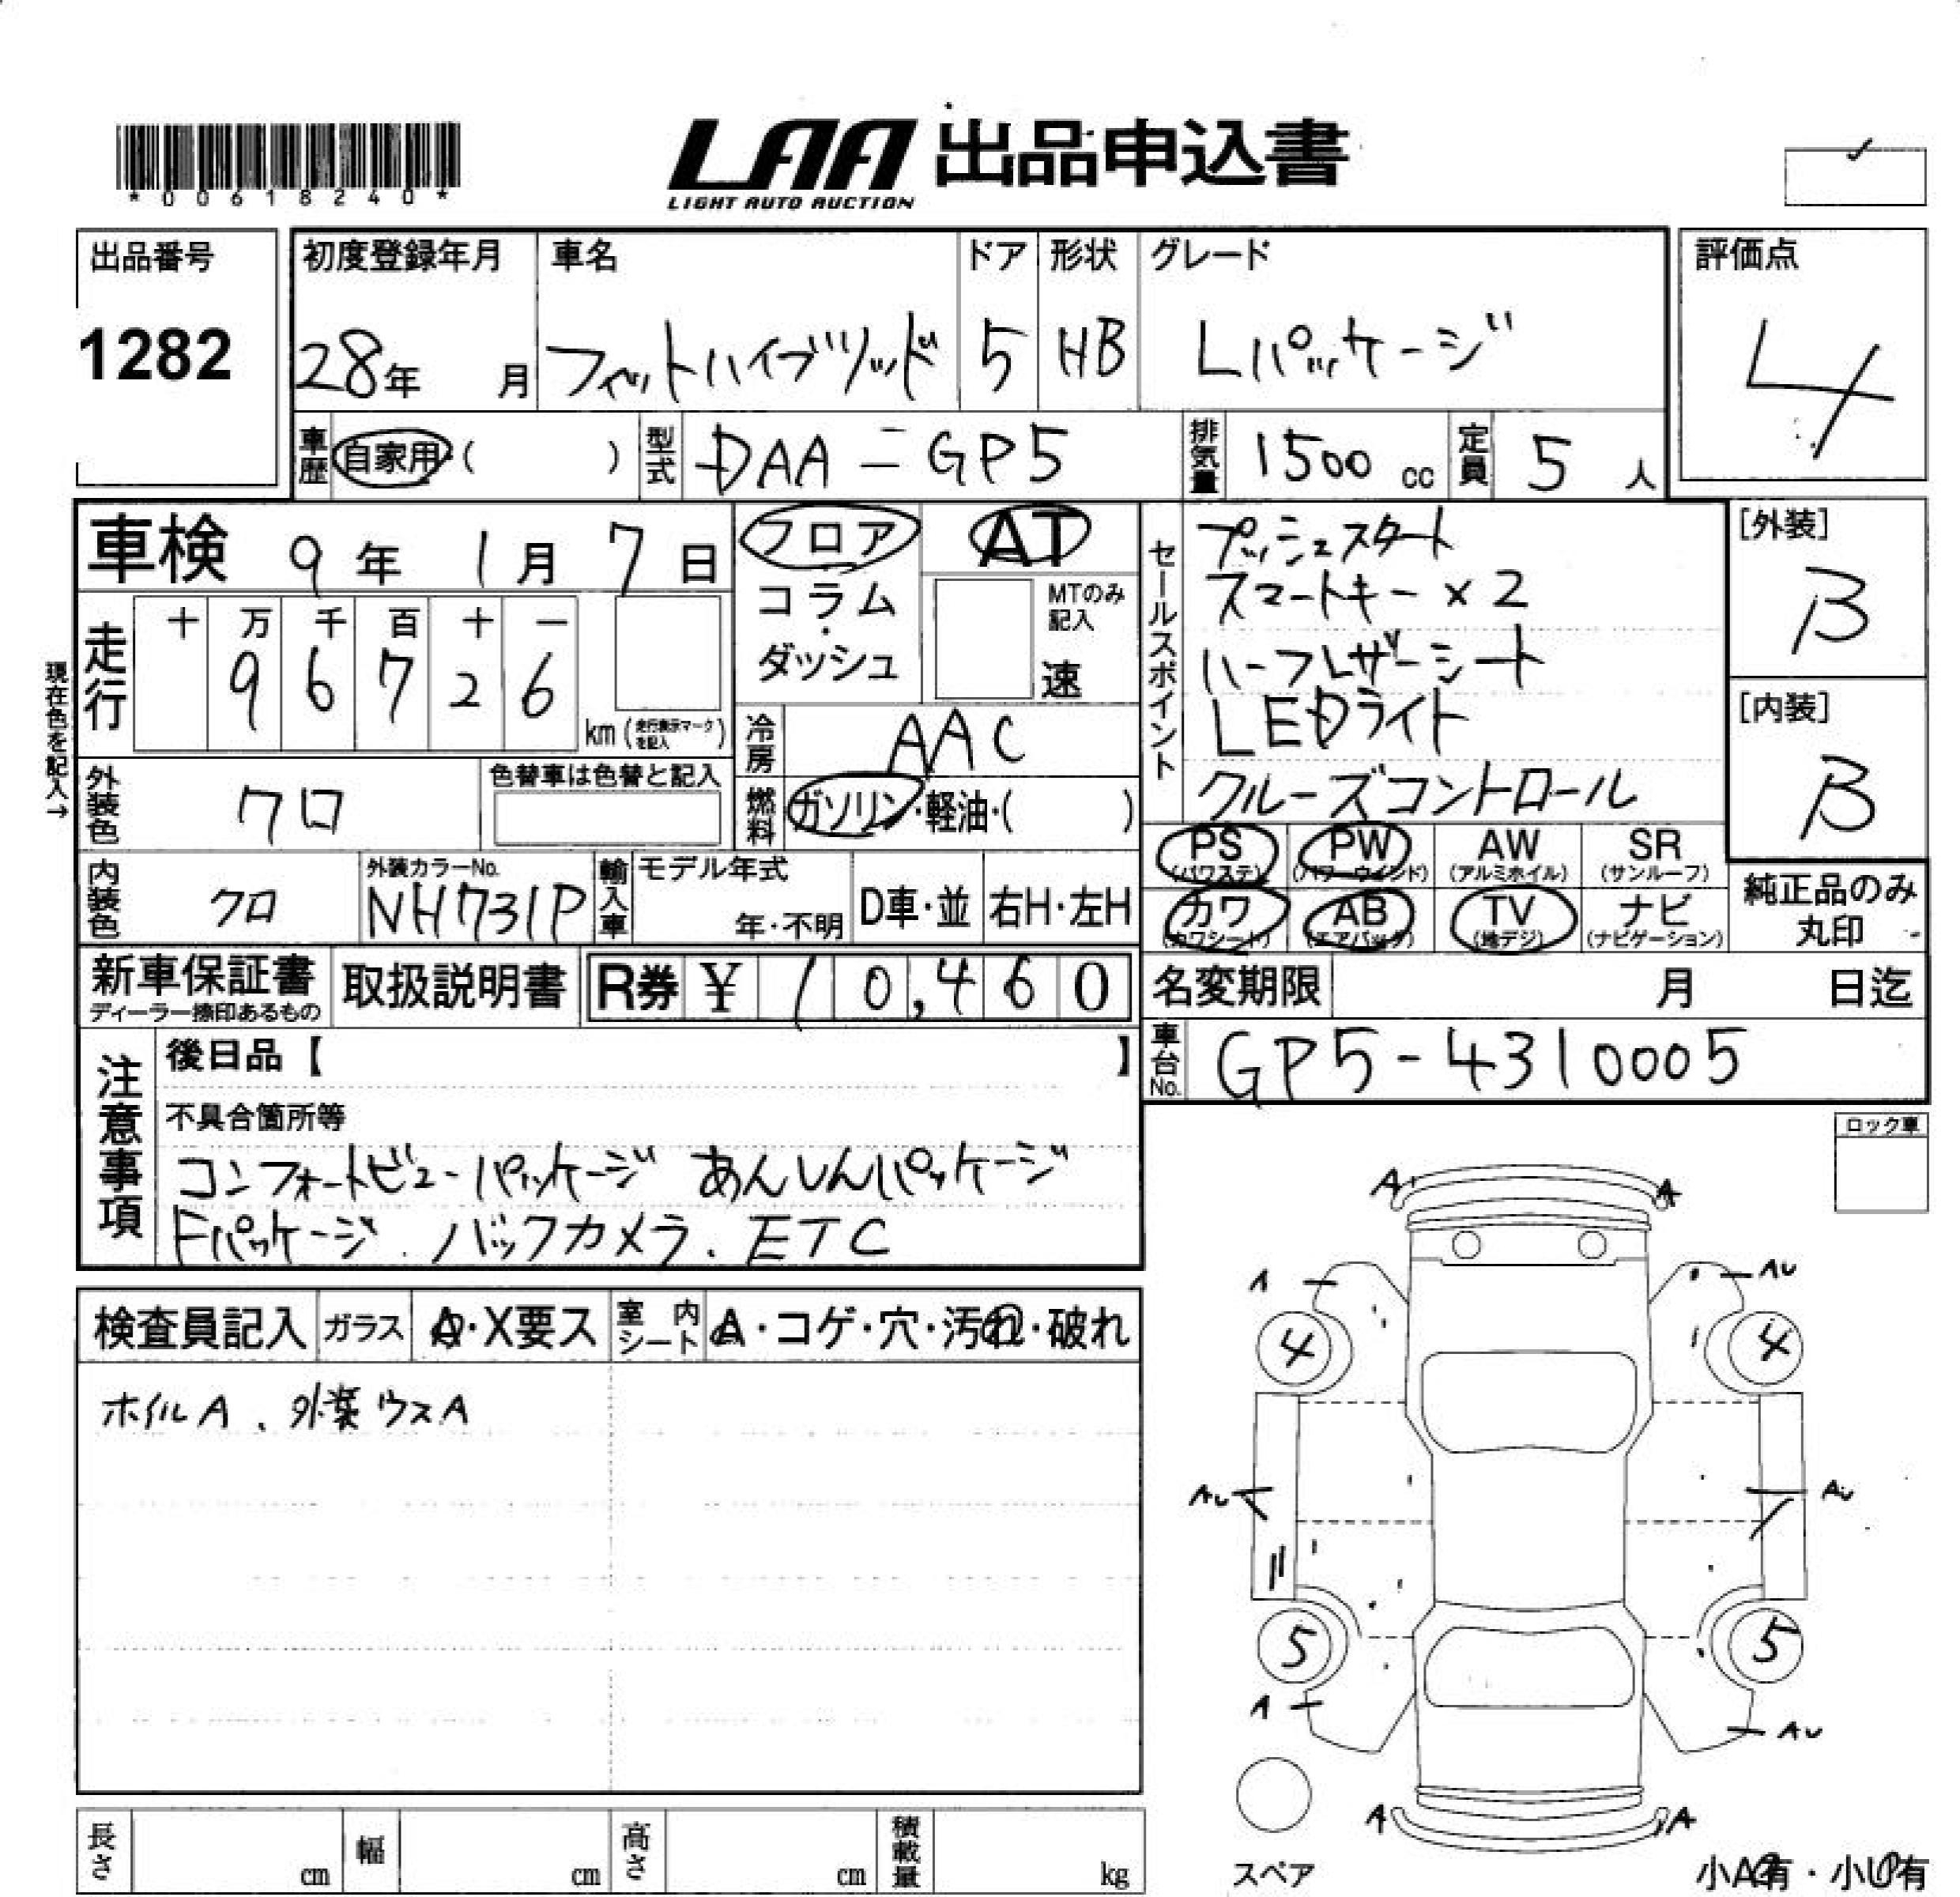 LAA 出品申込書
LIGHT AUTO AUCTION
*00618240*
出品番号
1282
初度登録年月
28年 月
車名
フィットハイブリッド
ドア
5
形状
HB
グレード
Lパッケージ
評価点
4
車歴 自家用・( )
型式 DAA-GP5
排気量 1500 cc
定員 5 人
車検 9年 1月 7日
走行
十 万 千 百 十 一
9 6 7 2 6
km (走行表示マークを記入)
フロア・コラム・ダッシュ
AT
MTのみ記入
速
冷房 AAC
燃料 ガソリン・軽油・( )
現在色を記入→
外装色 クロ
色替車は色替と記入
内装色 クロ
外装カラーNo.
NH731P
輸入車
モデル年式
年・不明
D車・並
右H・左H
セールスポイント
プッシュスタート
スマートキー×2
ハーフレザーシート
LEDライト
クルーズコントロール
[外装]
B
[内装]
B
PS (パワステ)
PW (パワーウインド)
AW (アルミホイル)
SR (サンルーフ)
カワ (カワシート)
AB (エアバック)
TV (地デジ)
ナビ (ナビゲーション)
純正品のみ
丸印
新車保証書
ディーラー捺印あるもの
取扱説明書
R券 ¥ 10,460
名変期限 月 日迄
車台No. GP5-4310005
注意事項
後日品【 】
不具合箇所等
コンフォートビューパッケージ あんしんパッケージ
Fパッケージ.バックカメラ.ETC
ロック車
検査員記入
ガラス A・X要ス
室内シート A・コゲ・穴・汚れ・破れ
ホイルA、外装ウスA
A A
A AU
4 4
AU AU
5 5
A AU
A A
スペア
小A有・小U有
長さ cm
幅 cm
高さ cm
積載量 kg